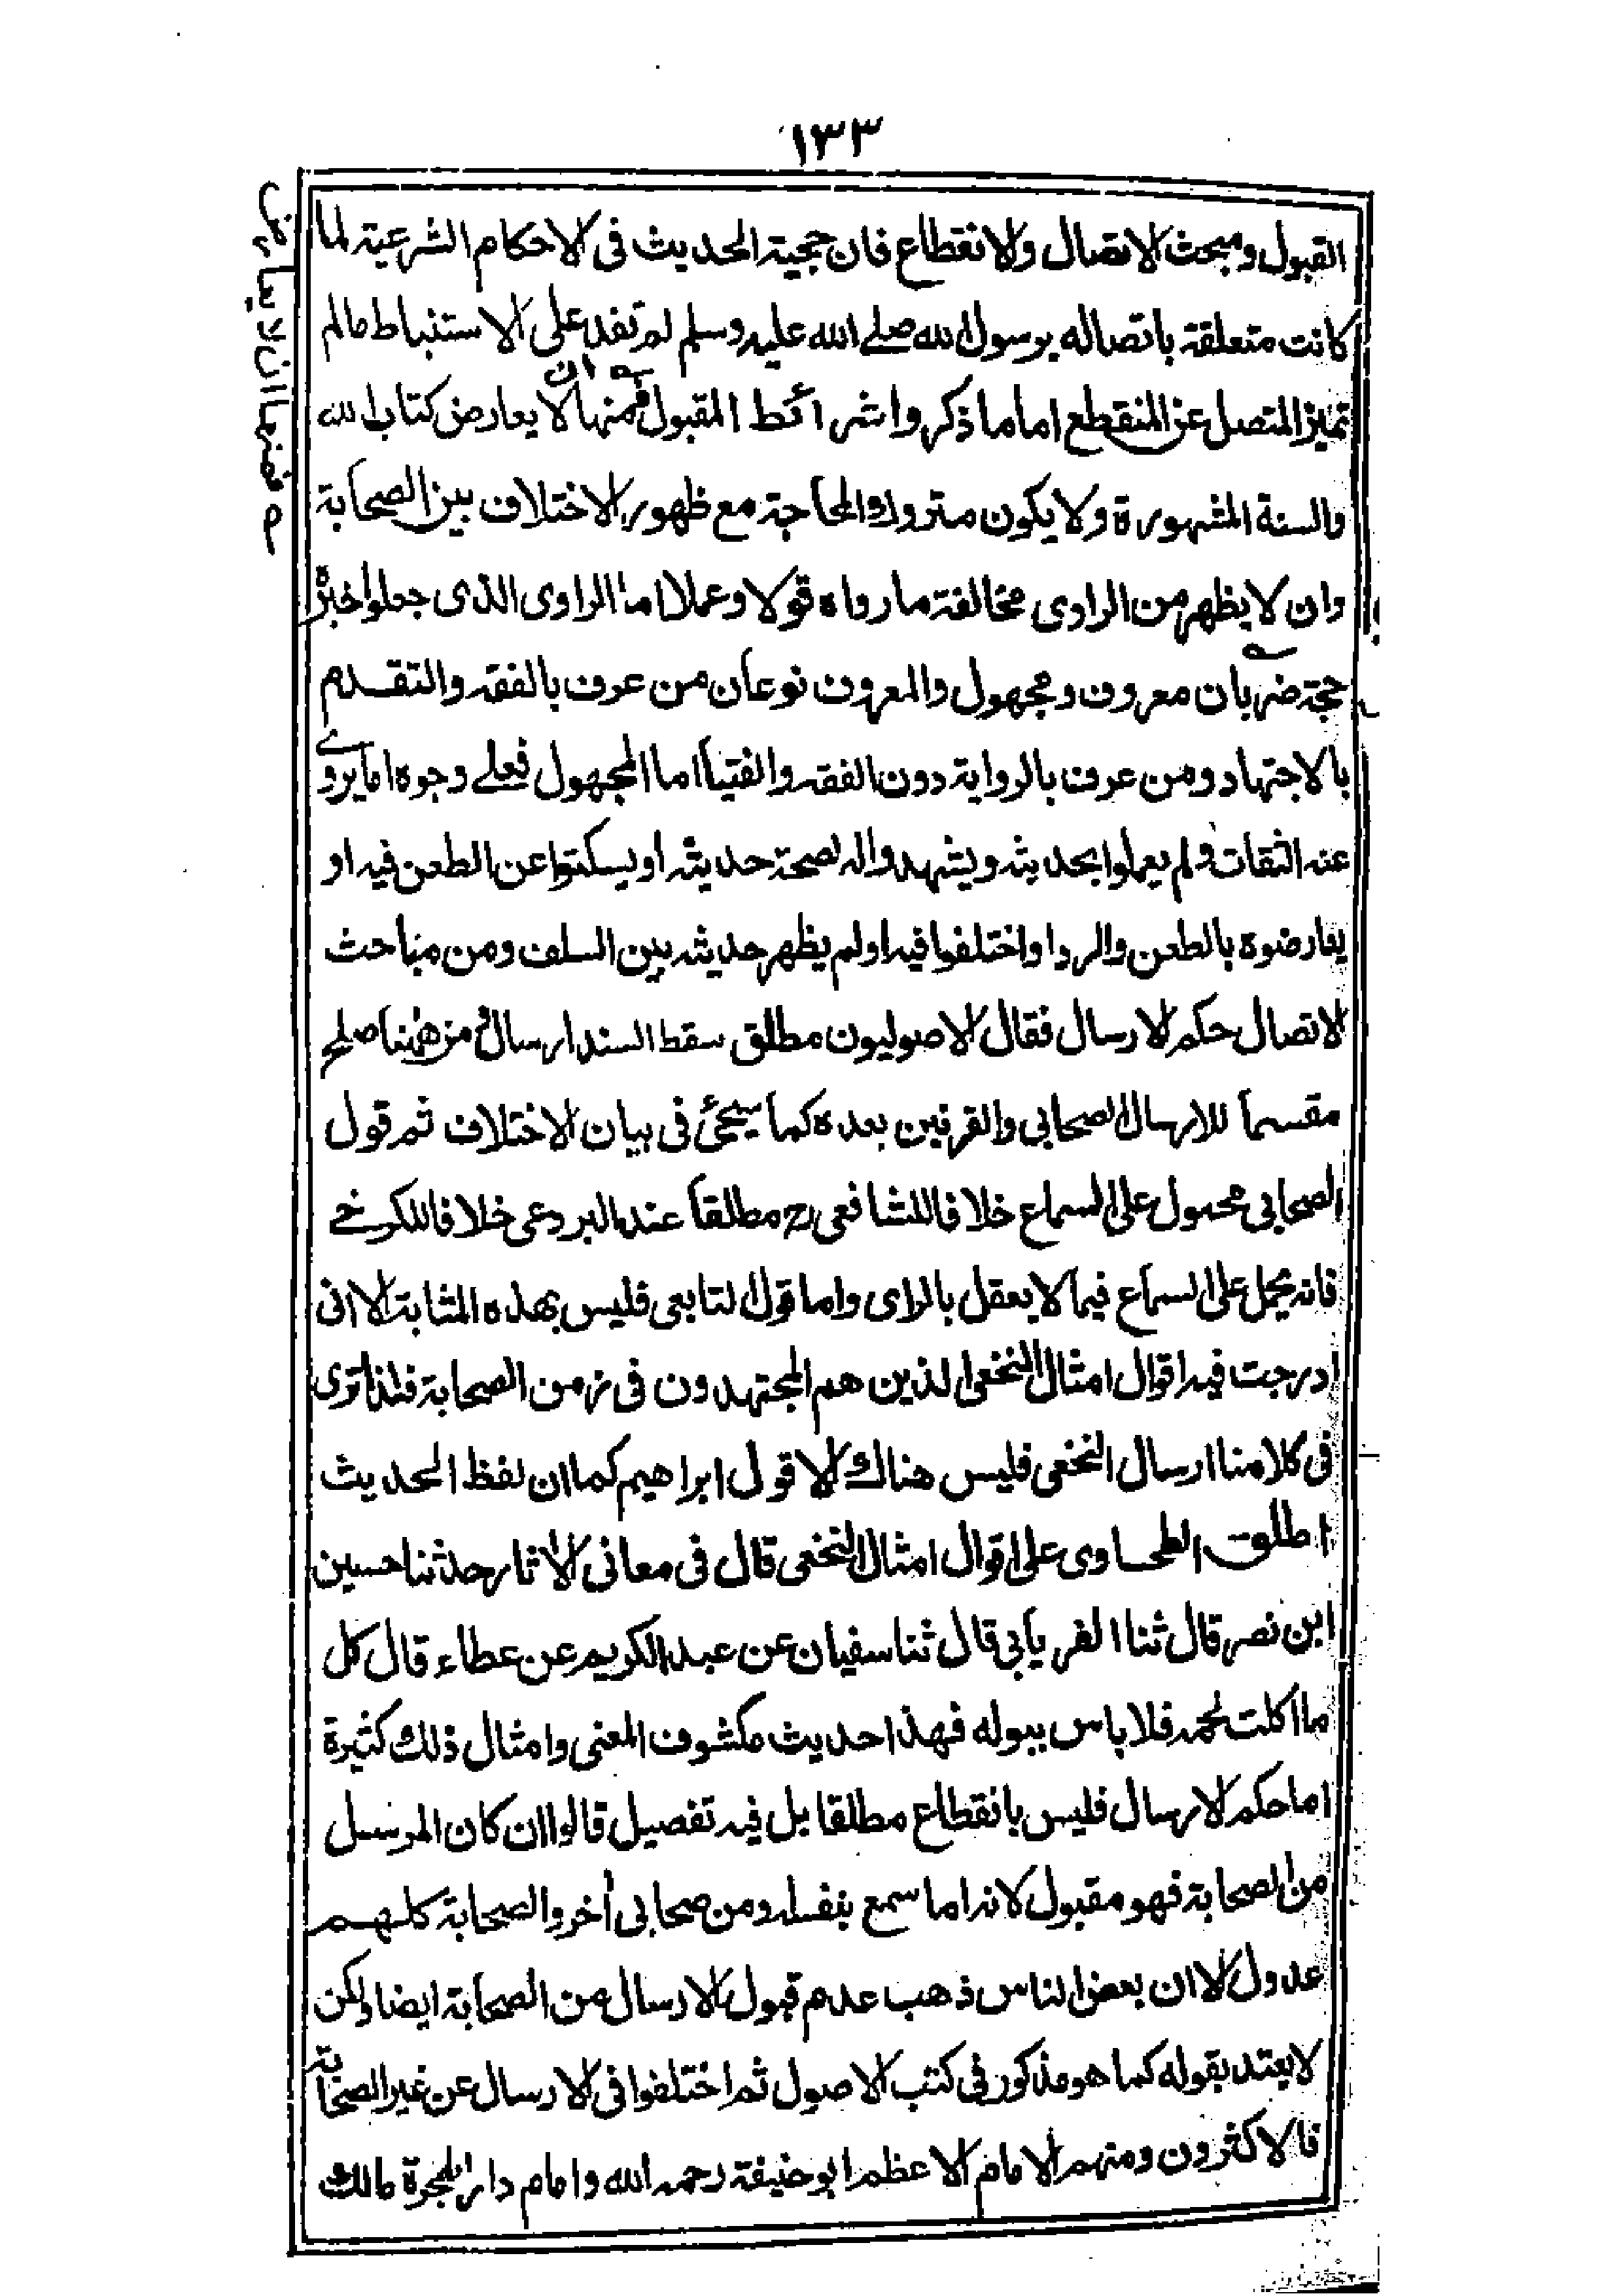 ١٣٣
القبول ومبحث الاتصال والانقطاع فان حجية الحديث فى الاحكام الشرعية لما
كانت متعلقة باتصاله برسول الله صلے الله عليه وسلم لم تفد على الاستنباط مالم
تميز المتصل عن المنقطع اما ما ذكروا شرائط المقبول فمنها ان لا يعارض كتاب الله
والسنة المشهورة ولا يكون متروك المحاجة مع ظهور الاختلاف بين الصحابة
وان لا يظهر من الراوى مخالفة ما رواه قولا وعملا اما الراوى الذى جعلوا خبره
حجة ضربان معروف ومجهول والمعروف نوعان من عرف بالفقه والتقدم
بالاجتهاد ومن عرف بالرواية دون الفقه والفتيا اما المجهول فعلے وجوه اما يروے
عنه الثقات ولم يعملوا بحديثه ويشهدوا له لصحة حديثه او يسكتوا عن الطعن فيه او
يعارضوه بالطعن والرد او اختلفوا فيه او لم يظهر حديثه بين السلف ومن مباحث
الاتصال حكم الارسال فقال الاصوليون مطلق سقط السند ارسال فمن ههنا صلح
مقسما للارسال الصحابى والقرنين بعده كما سيجئ فى بيان الاختلاف ثم قول
الصحابى محمول على السماع خلافا للشافعى رح مطلقا عند البردعى خلافا للكرخے
فانه يحمل على السماع فيما لا يعقل بالراى واما قول التابعى فليس بهذه المثابة الا انى
ادرجت فيه اقوال امثال النخعى الذين هم المجتهدون فى زمن الصحابة فلذا ترى
فى كلامنا ارسال النخعى فليس هناك الا قول ابراهيم كما ان لفظ الحديث
اطلق الطحاوى على اقوال امثال النخعى قال فى معانى الاثار حدثنا حسين
ابن نصر قال ثنا الفريابى قال ثنا سفيان عن عبد الكريم عن عطاء قال كل
ما اكلت لحمه فلا باس ببوله فهذا حديث مكشوف المعنى وامثال ذلك كثيرة
اما حكم الارسال فليس بانقطاع مطلقا بل فيه تفصيل قالوا ان كان المرسل
من الصحابة فهو مقبول لانه اما سمع بنفسه ومن صحابى أخر والصحابة كلهم
عدول الا ان بعض الناس ذهب عدم قبول الارسال من الصحابة ايضا ولكن
لا يعتد بقوله كما هو مذكور فى كتب الاصول ثم اختلفوا فى الارسال عن غير الصحابة
فالاكثرون ومنهم الامام الاعظم ابو حنيفة رحمه الله وامام دار الهجرة مالك
فمنها ان لا يعارض